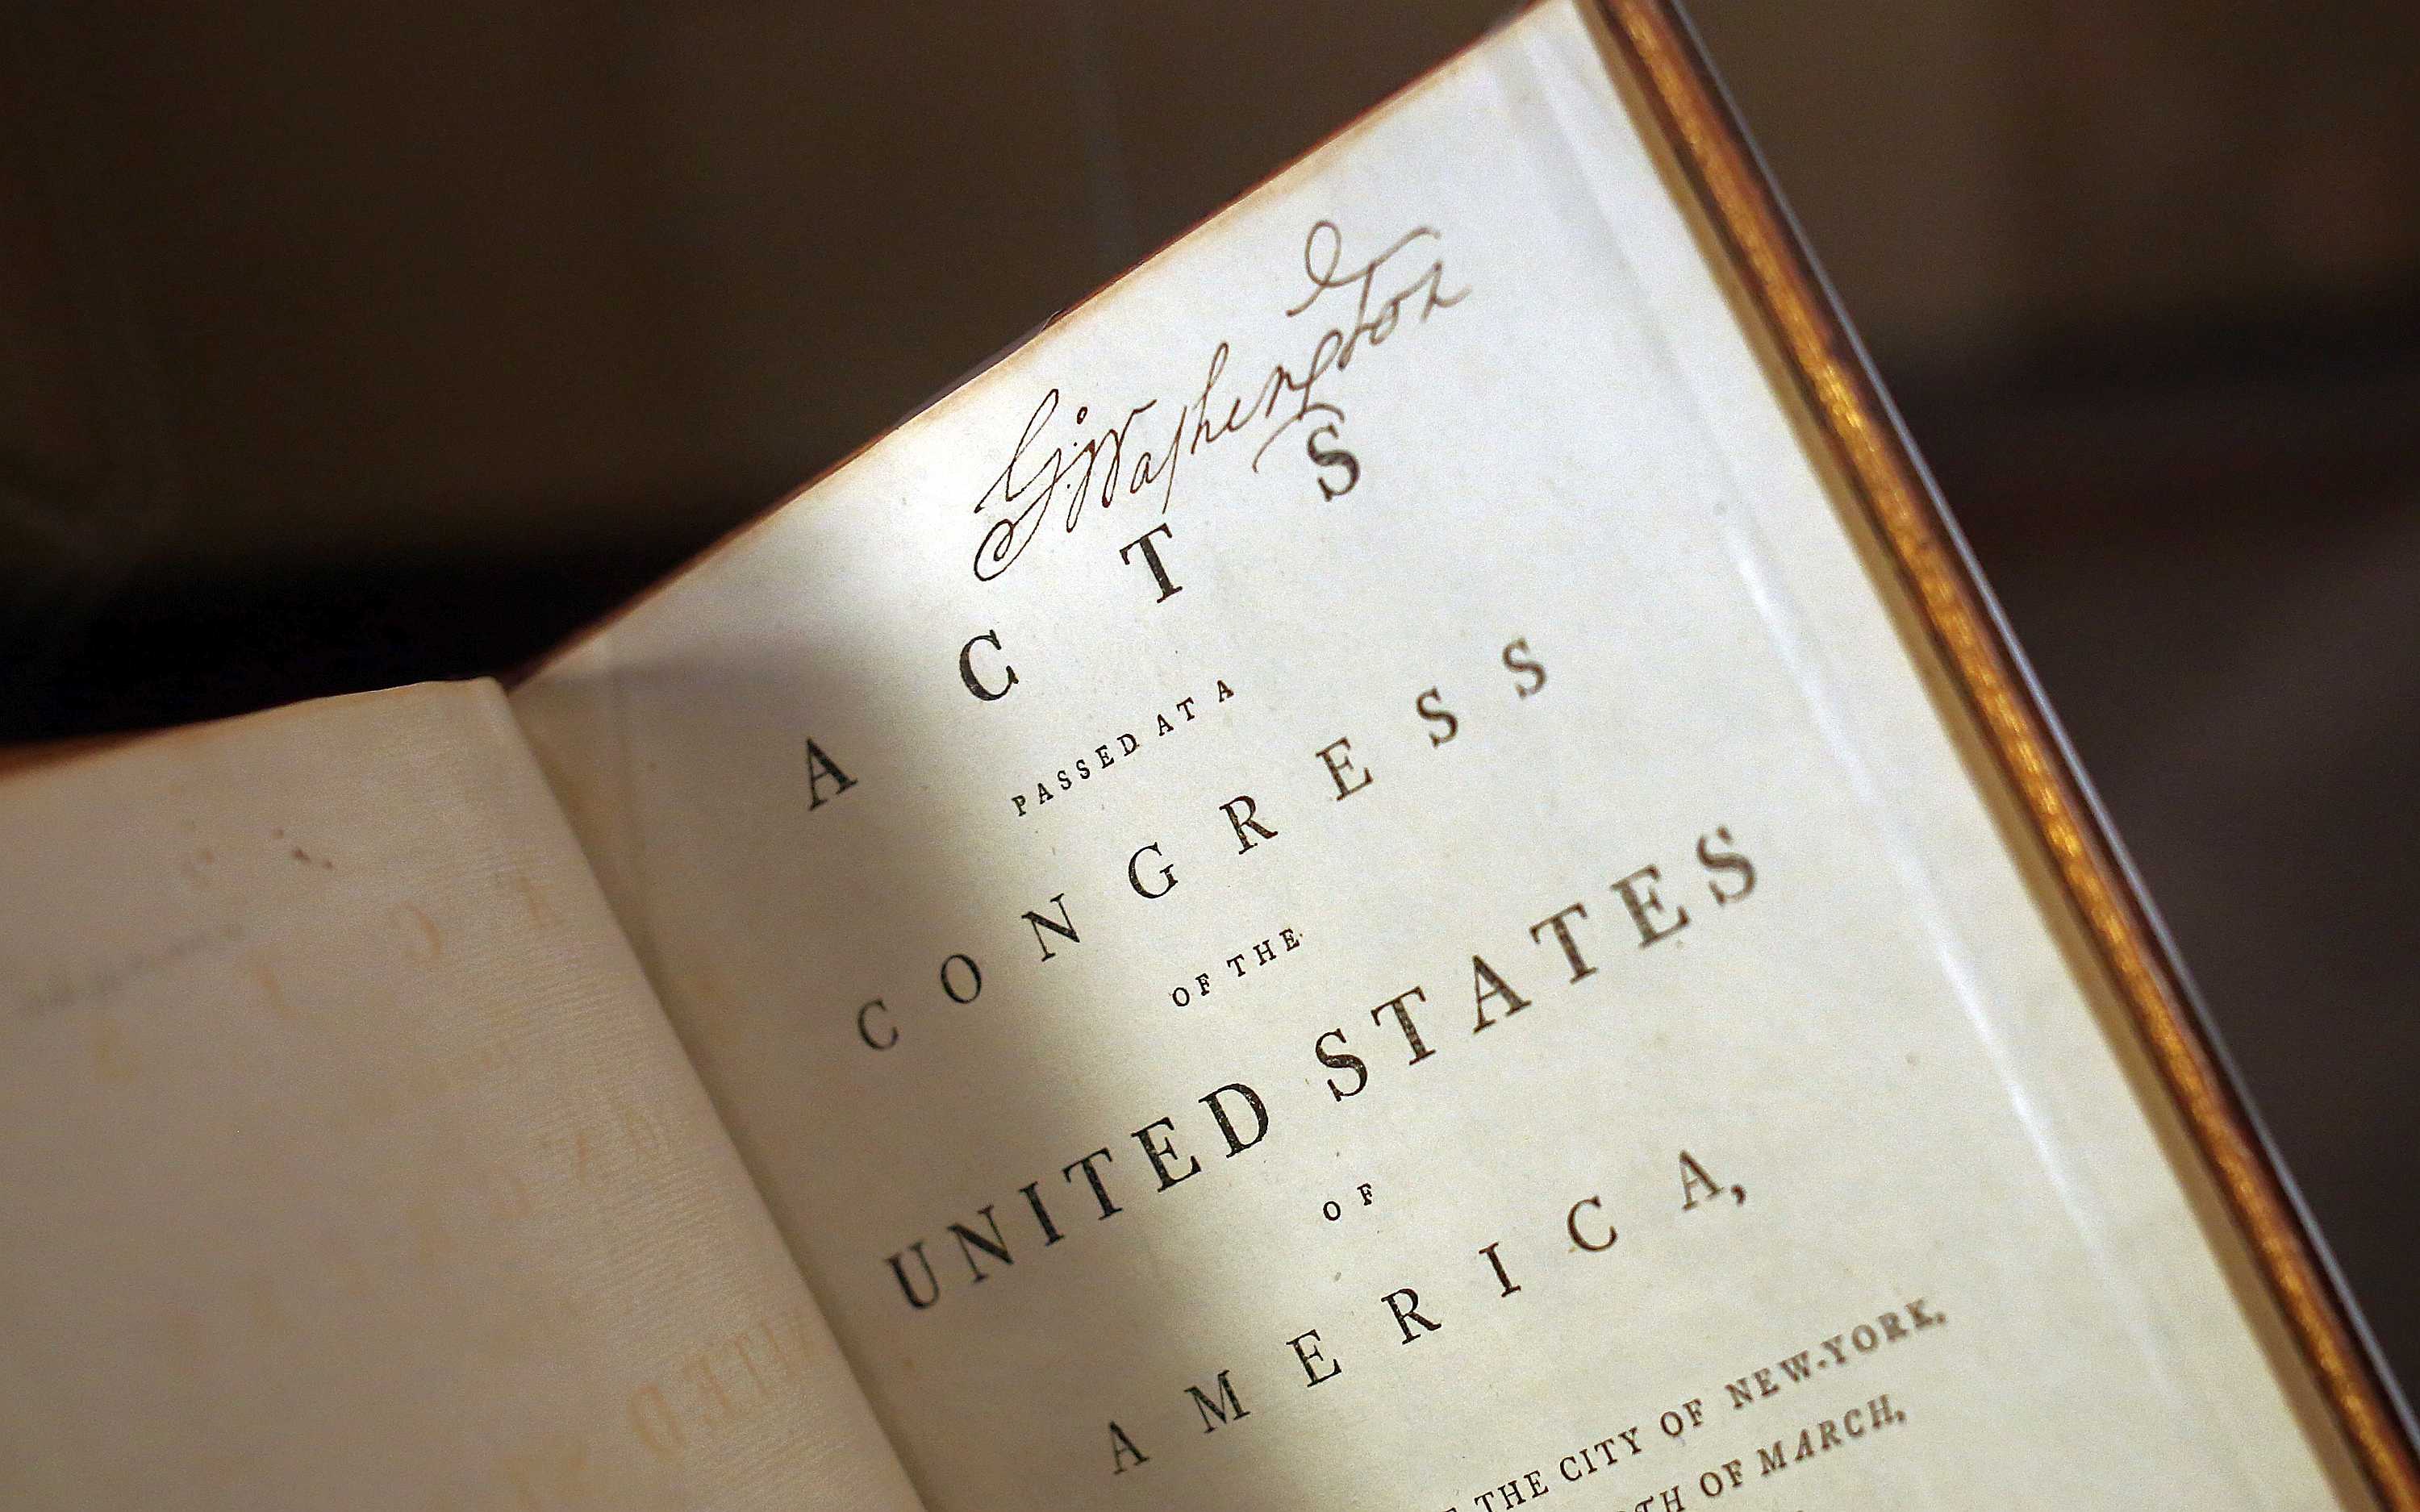 G:Washington
ACTS
PASSED AT A
CONGRESS
OF THE
UNITED STATES
OF
AMERICA,
THE CITY OF NEW-YORK,
OF MARCH,